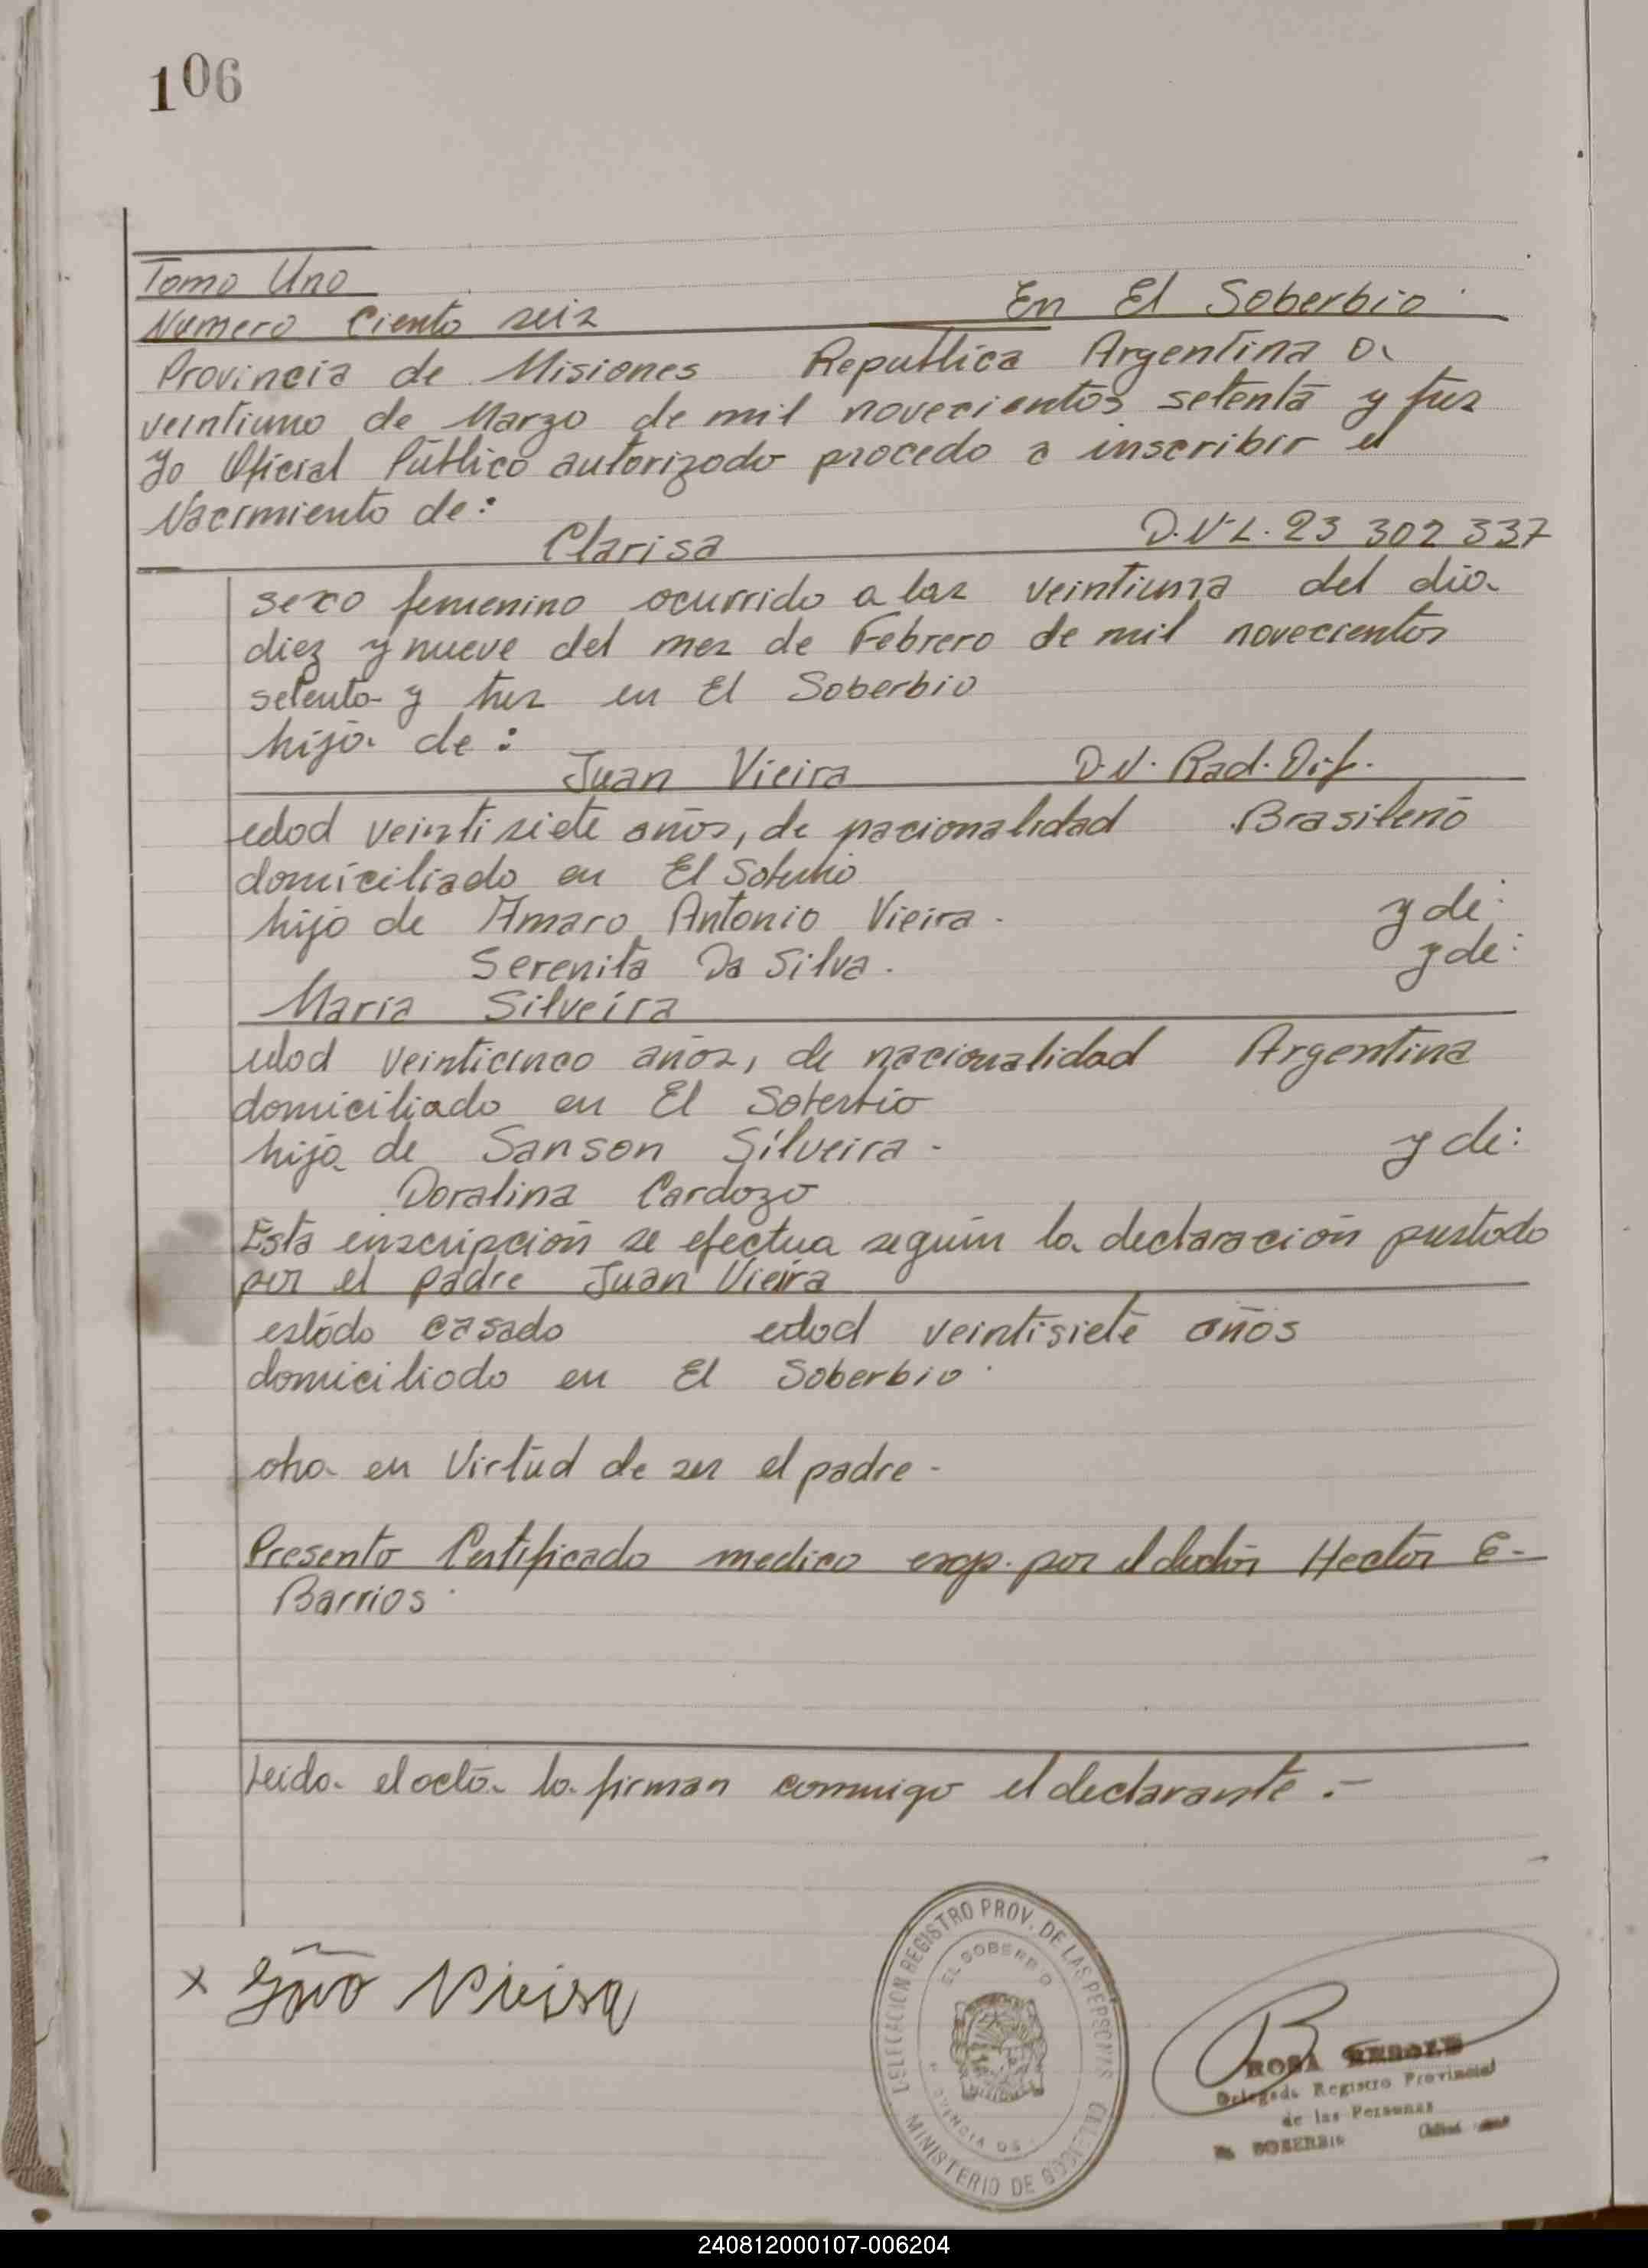 106
Tomo Uno
Numero Ciento seis En El Soberbio
Provincia de Misiones Republica Argentina a
veintiuno de Marzo de mil novecientos setenta y tres
Yo Oficial Público autorizado procedo a inscribir el
Nacimiento de:
Clarisa D.N.L. 23 302 337
sexo femenino ocurrido a las veintiuna del dia
diez y nueve del mes de Febrero de mil novecientos
setenta y tres en El Soberbio
hija de:
Juan Vieira D.N. Rad. Dif.
edad veintisiete años, de nacionalidad Brasileño
domiciliado en El Soberbio
hijo de Amaro Antonio Vieira. y de:
Serenita Da Silva. y de:
Maria Silveira
edad veinticinco años, de nacionalidad Argentina
domiciliado en El Soberbio
hija de Sanson Silveira - y de:
Doralina Cardozo
Esta enscripción se efectua según la declaración prestado
por el padre Juan Vieira
estado casado edad veintisiete años
domiciliado en El Soberbio.
obra en Virtud de ser el padre -
Presento Certificado medico exp. por el doctor Hector E-
Barrios.
Leida el acta la firman conmigo el declarante.-
x João Vieira
DELEGACION REGISTRO PROV. DE LAS PERSONAS
EL SOBERBIO
MINISTERIO DE
ROSA
Delegada Registro Provincial
de las Personas
SOBERBIO
240812000107-006204